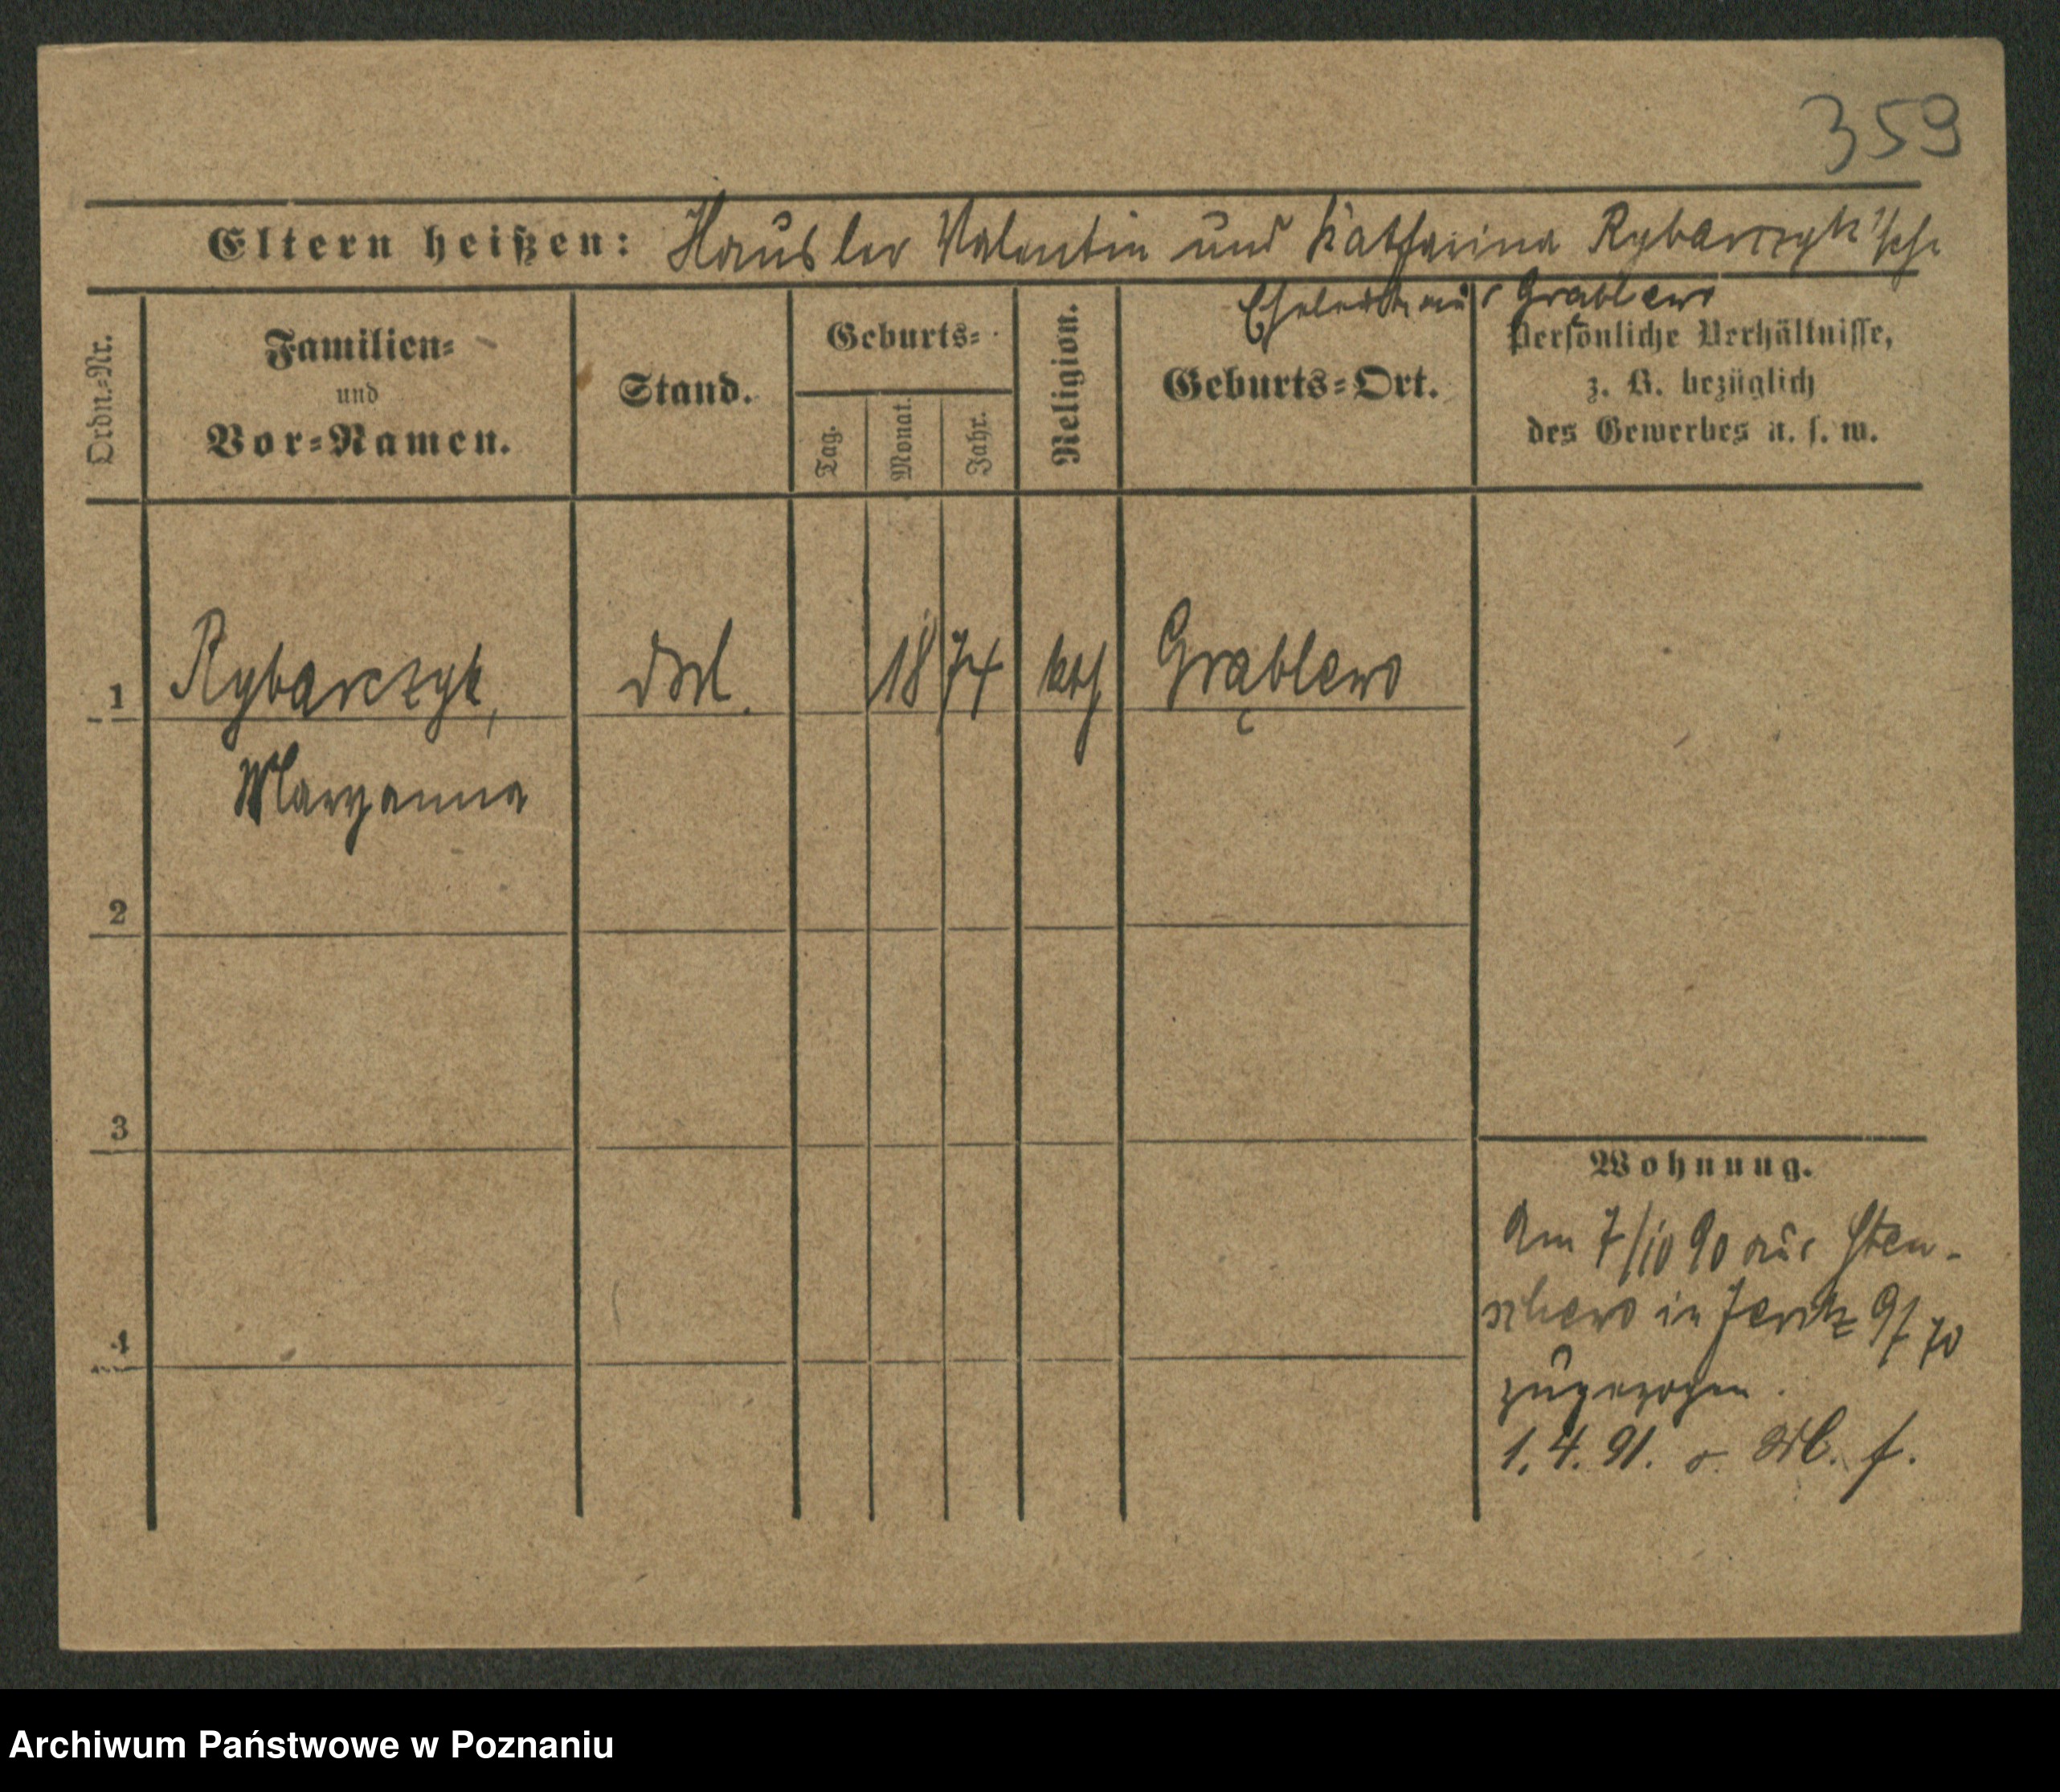 359
Eltern heißen: Häusler Valentin und Katharina Rybarczyk'sche
Eheleute aus Grąblewo
Ordn.-Nr.
Familien-
und
Vor-Namen.
Stand.
Geburts-
Tag.
Monat.
Jahr.
Religion.
Geburts-Ort.
Persönliche Verhältnisse,
z. B. bezüglich
des Gewerbes u. s. w.
1 Rybarczyk, 1874 kath Grąblewo
Maryanna
2
3
4
Wohnung.
Am 7/10 90 aus Sten-
schewo in Jeritz 97
zugezogen.
1. 4. 91.
Archiwum Państwowe w Poznaniu